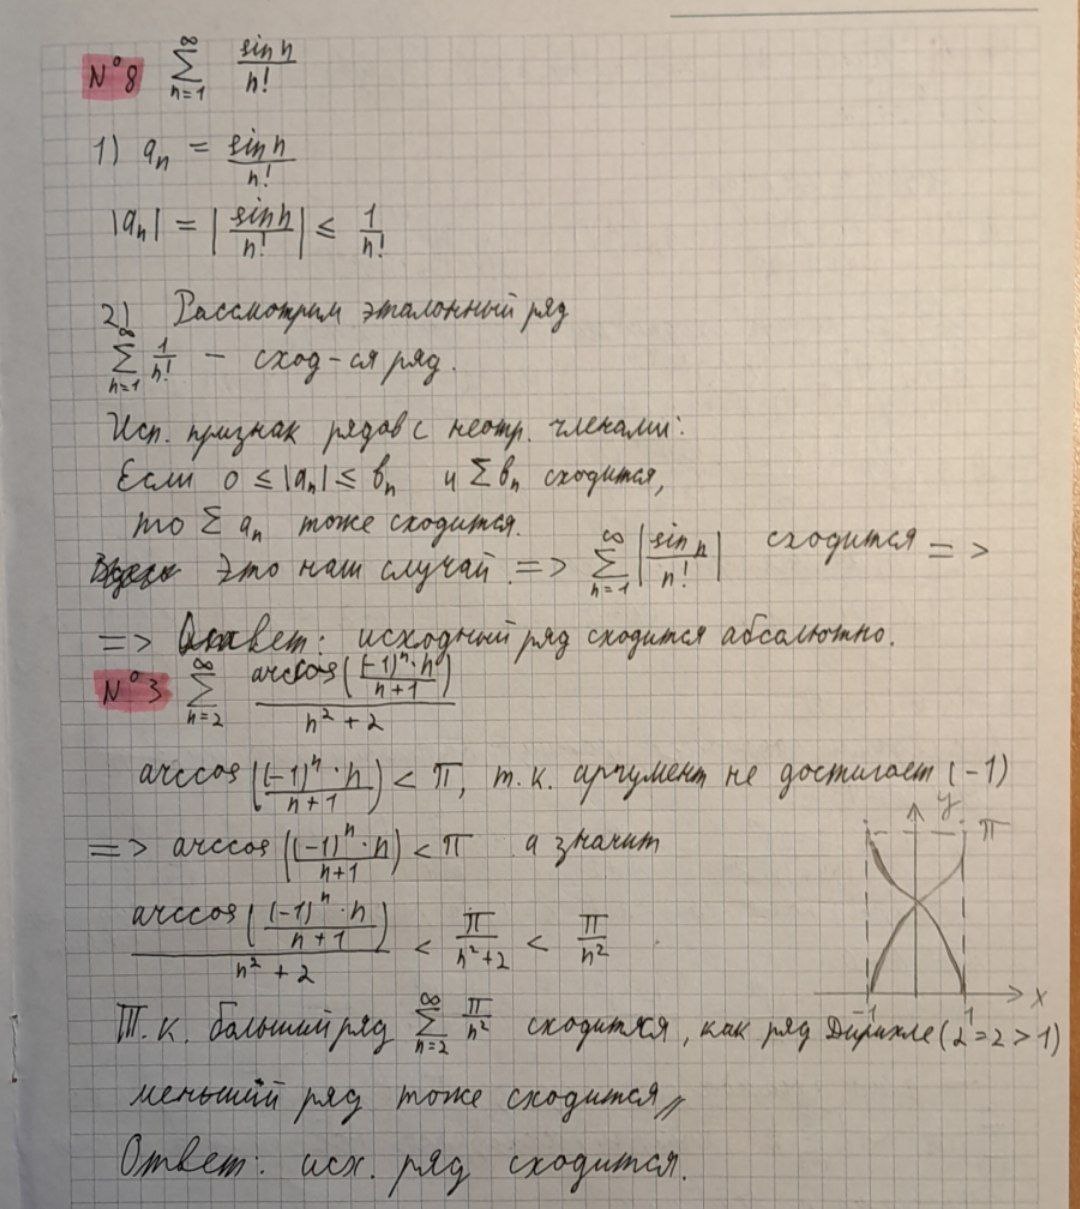 N°8 ∑_{n=1}^{∞} sin n / n!
1) a_n = sin n / n!
|a_n| = |sin n / n!| ≤ 1 / n!
2) Рассмотрим эталонный ряд
∑_{n=1}^{∞} 1/n! – сход-ся ряд.
Исп. признак рядов с неотр. членами:
Если 0 ≤ |a_n| ≤ b_n и ∑ b_n сходится,
то ∑ a_n тоже сходится.
Это наш случай. => ∑_{n=1}^{∞} |sin n / n!| сходится =>
=> Ответ: исходный ряд сходится абсолютно.
N°3 ∑_{n=2}^{∞} arccos((-1)^n · n / (n+1)) / (n² + 2)
arccos((-1)^n · n / (n+1)) < π, т.к. аргумент не достигает (-1)
=> arccos((-1)^n · n / (n+1)) < π а значит
y
π
arccos((-1)^n · n / (n+1)) / (n² + 2) < π / (n²+2) < π / n²
-1 1 x
Т.к. больший ряд ∑_{n=2}^{∞} π/n² сходится, как ряд Дирихле (α=2>1)
меньший ряд тоже сходится,,
Ответ: исх. ряд сходится.